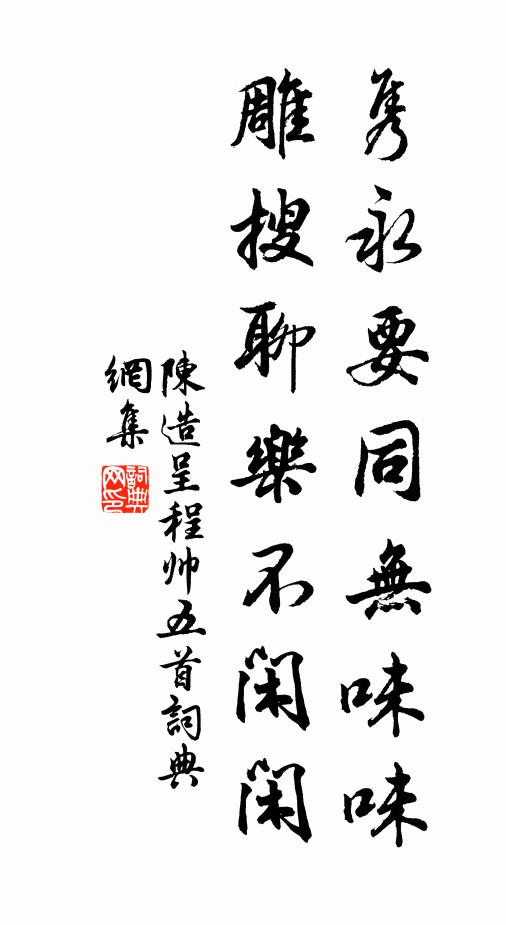 隽永要同無味味
雕搜聊樂不閑閑
陳造呈程帅五首詞典
網集
詞典網印